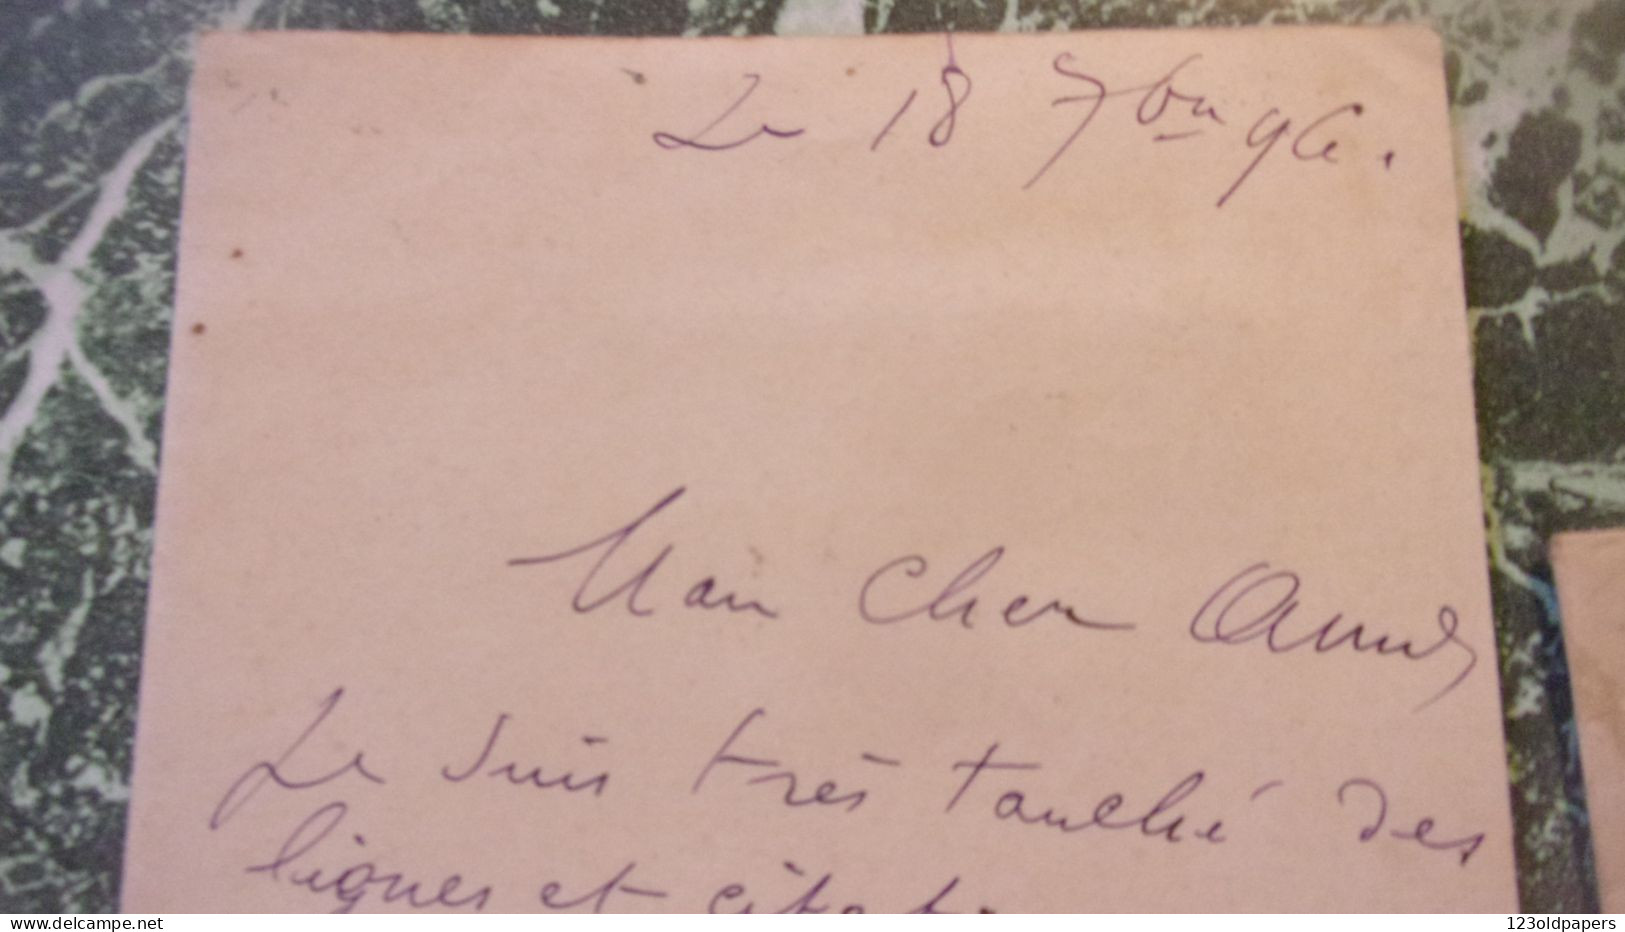 Le 18 7bre 96.
Mon cher Ami,
Je suis très touché des
lignes et citat
www.delcampe.net
123oldpapers